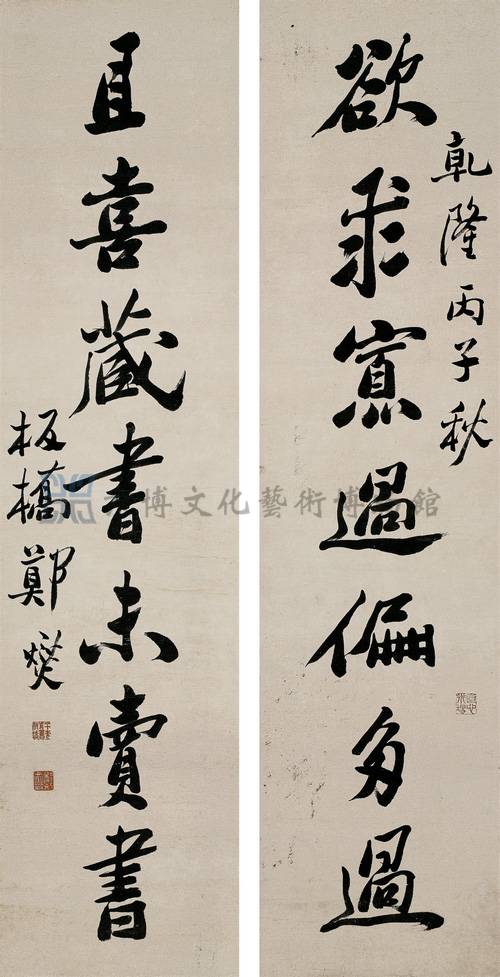 乾隆丙子秋
欲求寡過偏多過
且喜藏書未賣書
板橋鄭燮
博文化藝術博館